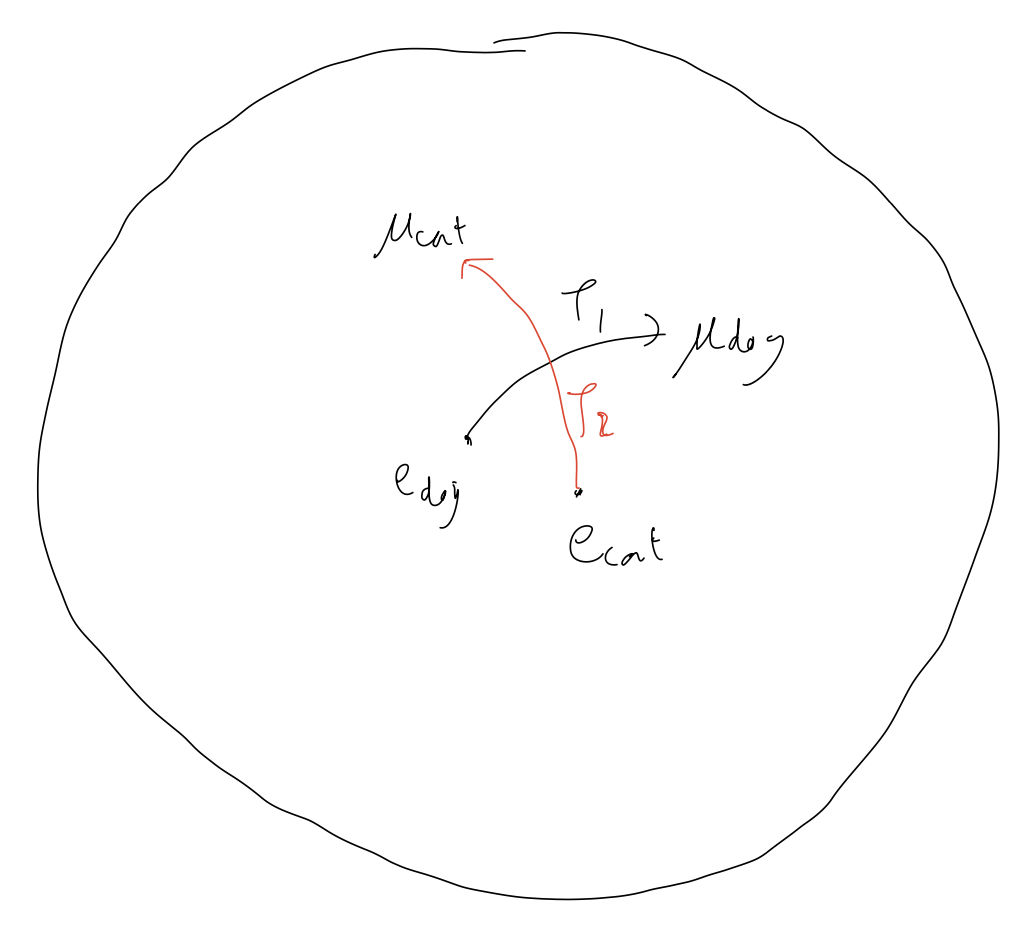 μcat
T1
μdog
T2
edog
ecat